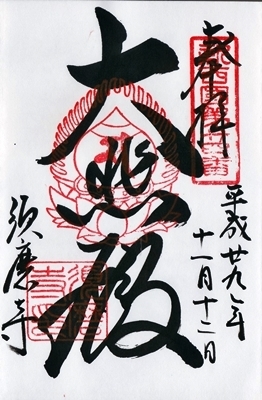 奉拝
平成廿九年
十一月十二日
大悲殿
須磨寺